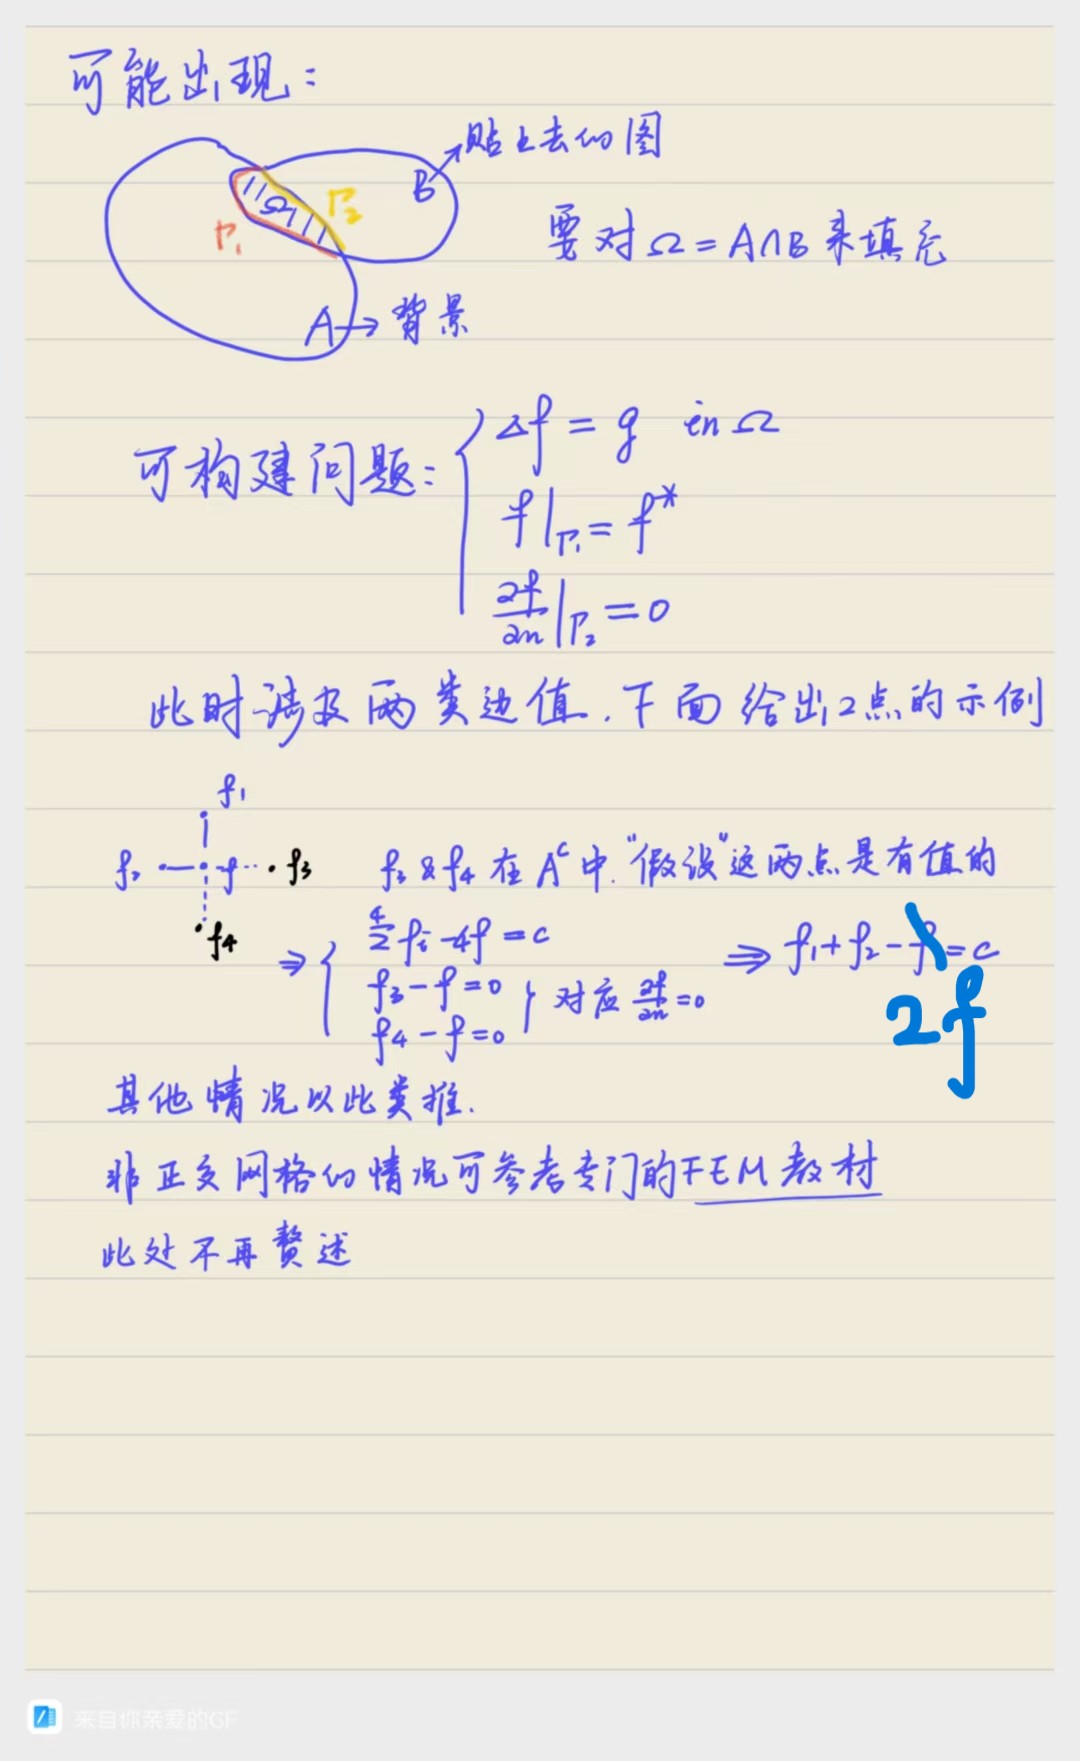 可能出现：
B→贴上去的图
Ω
Γ₁
Γ₂
要对Ω=A∩B来填充
A→背景
可构建问题：
Δf = g in Ω
f|Γ₁ = f*
∂f/∂n|Γ₂ = 0
此时涉及两类边值.下面给出2点的示例
f₁
f₂ f f₃
f₄
f₃ & f₄ 在 Aᶜ 中."假设"这两点是有值的
⇒ { Σ⁴ fᵢ - 4f = c
f₃ - f = 0
f₄ - f = 0
} 对应 ∂f/∂n = 0
⇒ f₁ + f₂ - f = c
2f
其他情况以此类推.
非正交网格的情况可参考专门的FEM教材
此处不再赘述
来自你亲爱的GF